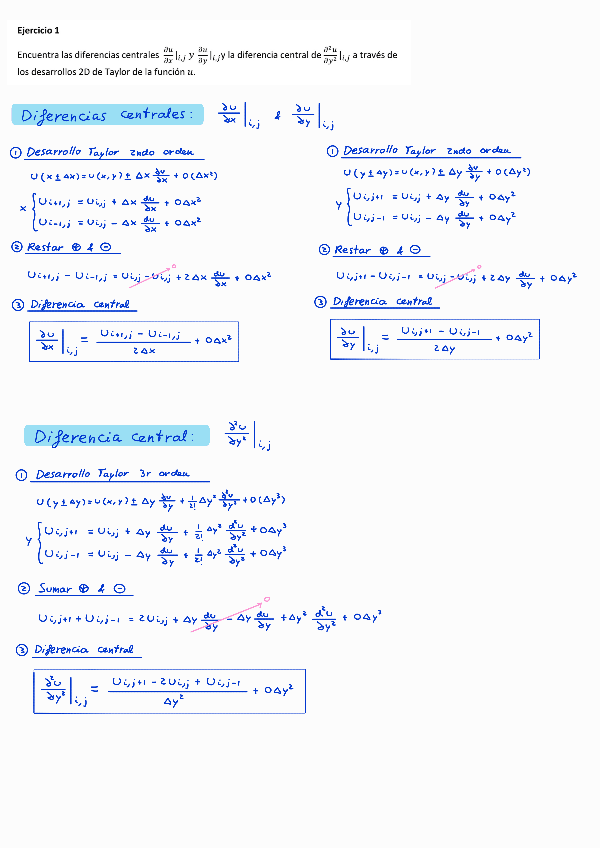 Ejercicio 1
Encuentra las diferencias centrales ∂u/∂x|i,j y ∂u/∂y|i,j y la diferencia central de ∂²u/∂y²|i,j a través de
los desarrollos 2D de Taylor de la función u.
Diferencias centrales: ∂u/∂x|i,j & ∂u/∂y|i,j
① Desarrollo Taylor 2ndo orden
U(x ± Δx) = U(x,y) ± Δx ∂u/∂x + O(Δx²)
x { Ui+1,j = Ui,j + Δx du/∂x + OΔx²
Ui-1,j = Ui,j - Δx du/∂x + OΔx²
② Restar ⊕ & ⊖
Ui+1,j - Ui-1,j = Ui,j - Ui,j + 2Δx du/∂x + OΔx²
0
③ Diferencia central
∂u/∂x|i,j = (Ui+1,j - Ui-1,j)/(2Δx) + OΔx²
① Desarrollo Taylor 2ndo orden
U(y ± Δy) = U(x,y) ± Δy ∂u/∂y + O(Δy²)
y { Ui,j+1 = Ui,j + Δy du/∂y + OΔy²
Ui,j-1 = Ui,j - Δy du/∂y + OΔy²
② Restar ⊕ & ⊖
Ui,j+1 - Ui,j-1 = Ui,j - Ui,j + 2Δy du/∂y + OΔy²
0
③ Diferencia central
∂u/∂y|i,j = (Ui,j+1 - Ui,j-1)/(2Δy) + OΔy²
Diferencia central: ∂²u/∂y²|i,j
① Desarrollo Taylor 3r orden
U(y ± Δy) = U(x,y) ± Δy ∂u/∂y + 1/2! Δy² ∂²u/∂y² + O(Δy³)
y { Ui,j+1 = Ui,j + Δy du/∂y + 1/2! Δy² d²u/∂y² + OΔy³
Ui,j-1 = Ui,j - Δy du/∂y + 1/2! Δy² d²u/∂y² + OΔy³
② Sumar ⊕ & ⊖
Ui,j+1 + Ui,j-1 = 2Ui,j + Δy du/∂y - Δy du/∂y + Δy² d²u/∂y² + OΔy³
0
③ Diferencia central
∂²u/∂y²|i,j = (Ui,j+1 - 2Ui,j + Ui,j-1)/Δy² + OΔy²